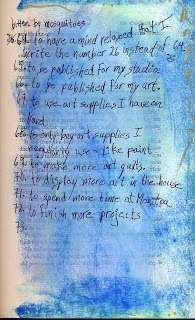 bitten by mosquitoes.
to have a mind relaxed that I
write the number 26 instead of 64.
65. to be published for my studio
66. to be published for my art.
67. to use art supplies I have on
hand.
68. to only buy art supplies I
regularly use - like paint.
69. to make more art quilts.
70. to display more art in the house
71. to spend more time at Manitou
72. to finish more projects
73.